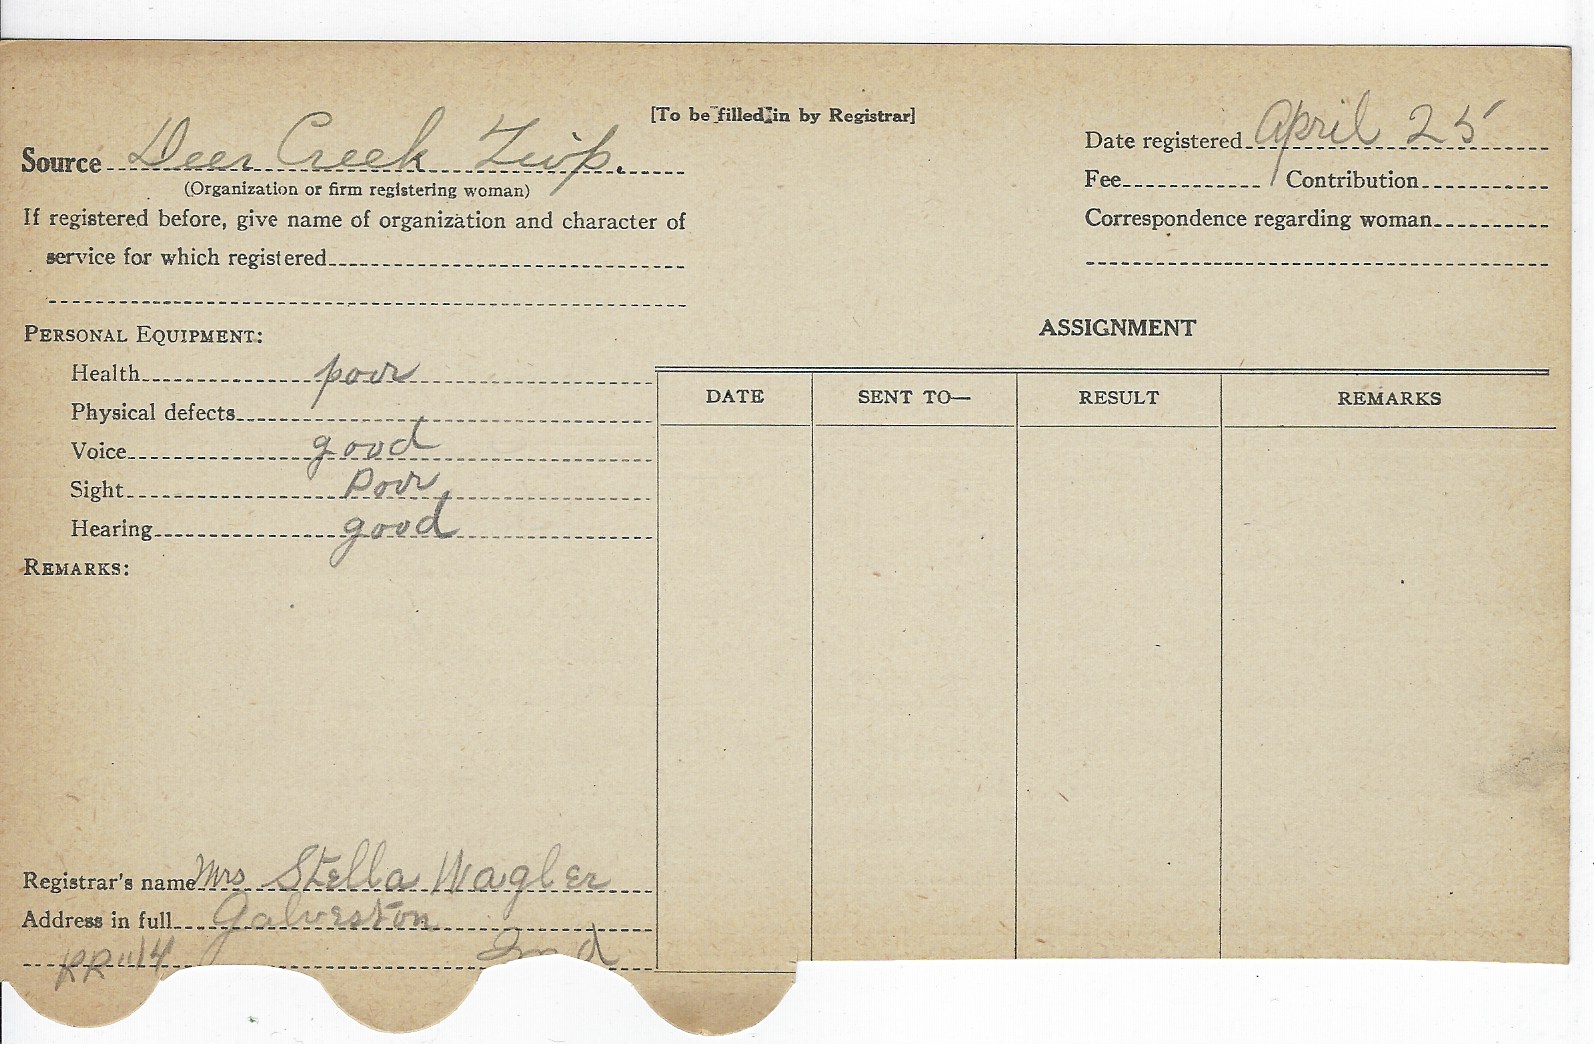 [To be filled in by Registrar]
Source Deer Creek Twp.
(Organization or firm registering woman)
If registered before, give name of organization and character of
service for which registered
Date registered April 25
Fee Contribution
Correspondence regarding woman
PERSONAL EQUIPMENT:
Health poor
Physical defects
Voice good
Sight Poor
Hearing good
REMARKS:
ASSIGNMENT
DATE SENT TO— RESULT REMARKS
Registrar's name Mrs Stella Wagler
Address in full Galveston
RR "14 Ind